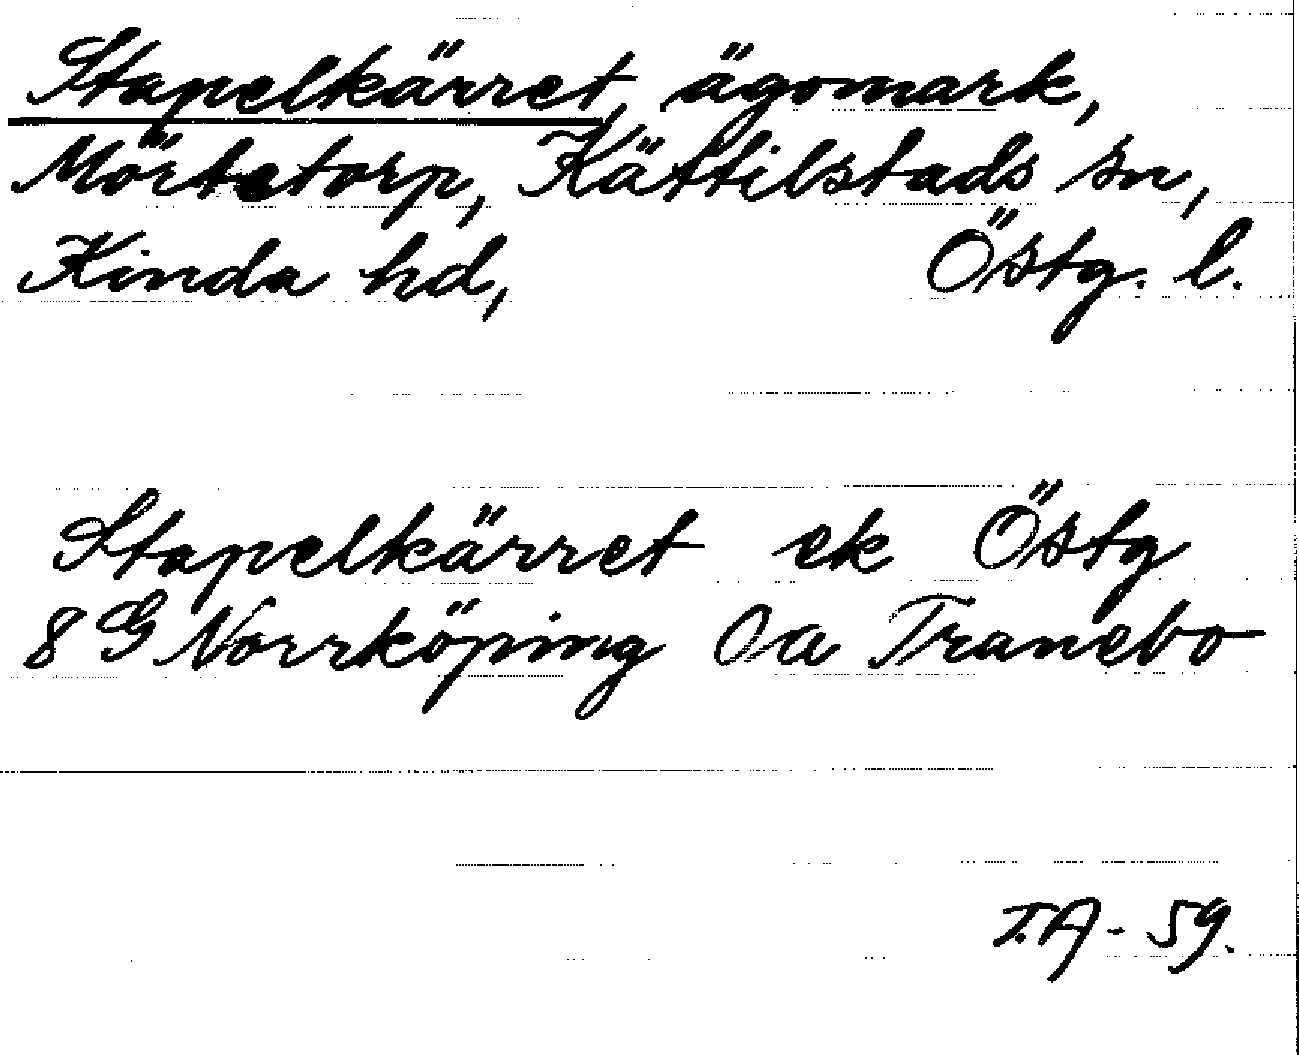 Stapelkärret, ägomark,
Mörtetorp, Kättilstads sn,
Kinda hd, Östg. l.
Stapelkärret ek Östg
8 G Norrköping 0a Tranebo
T.A - 59.